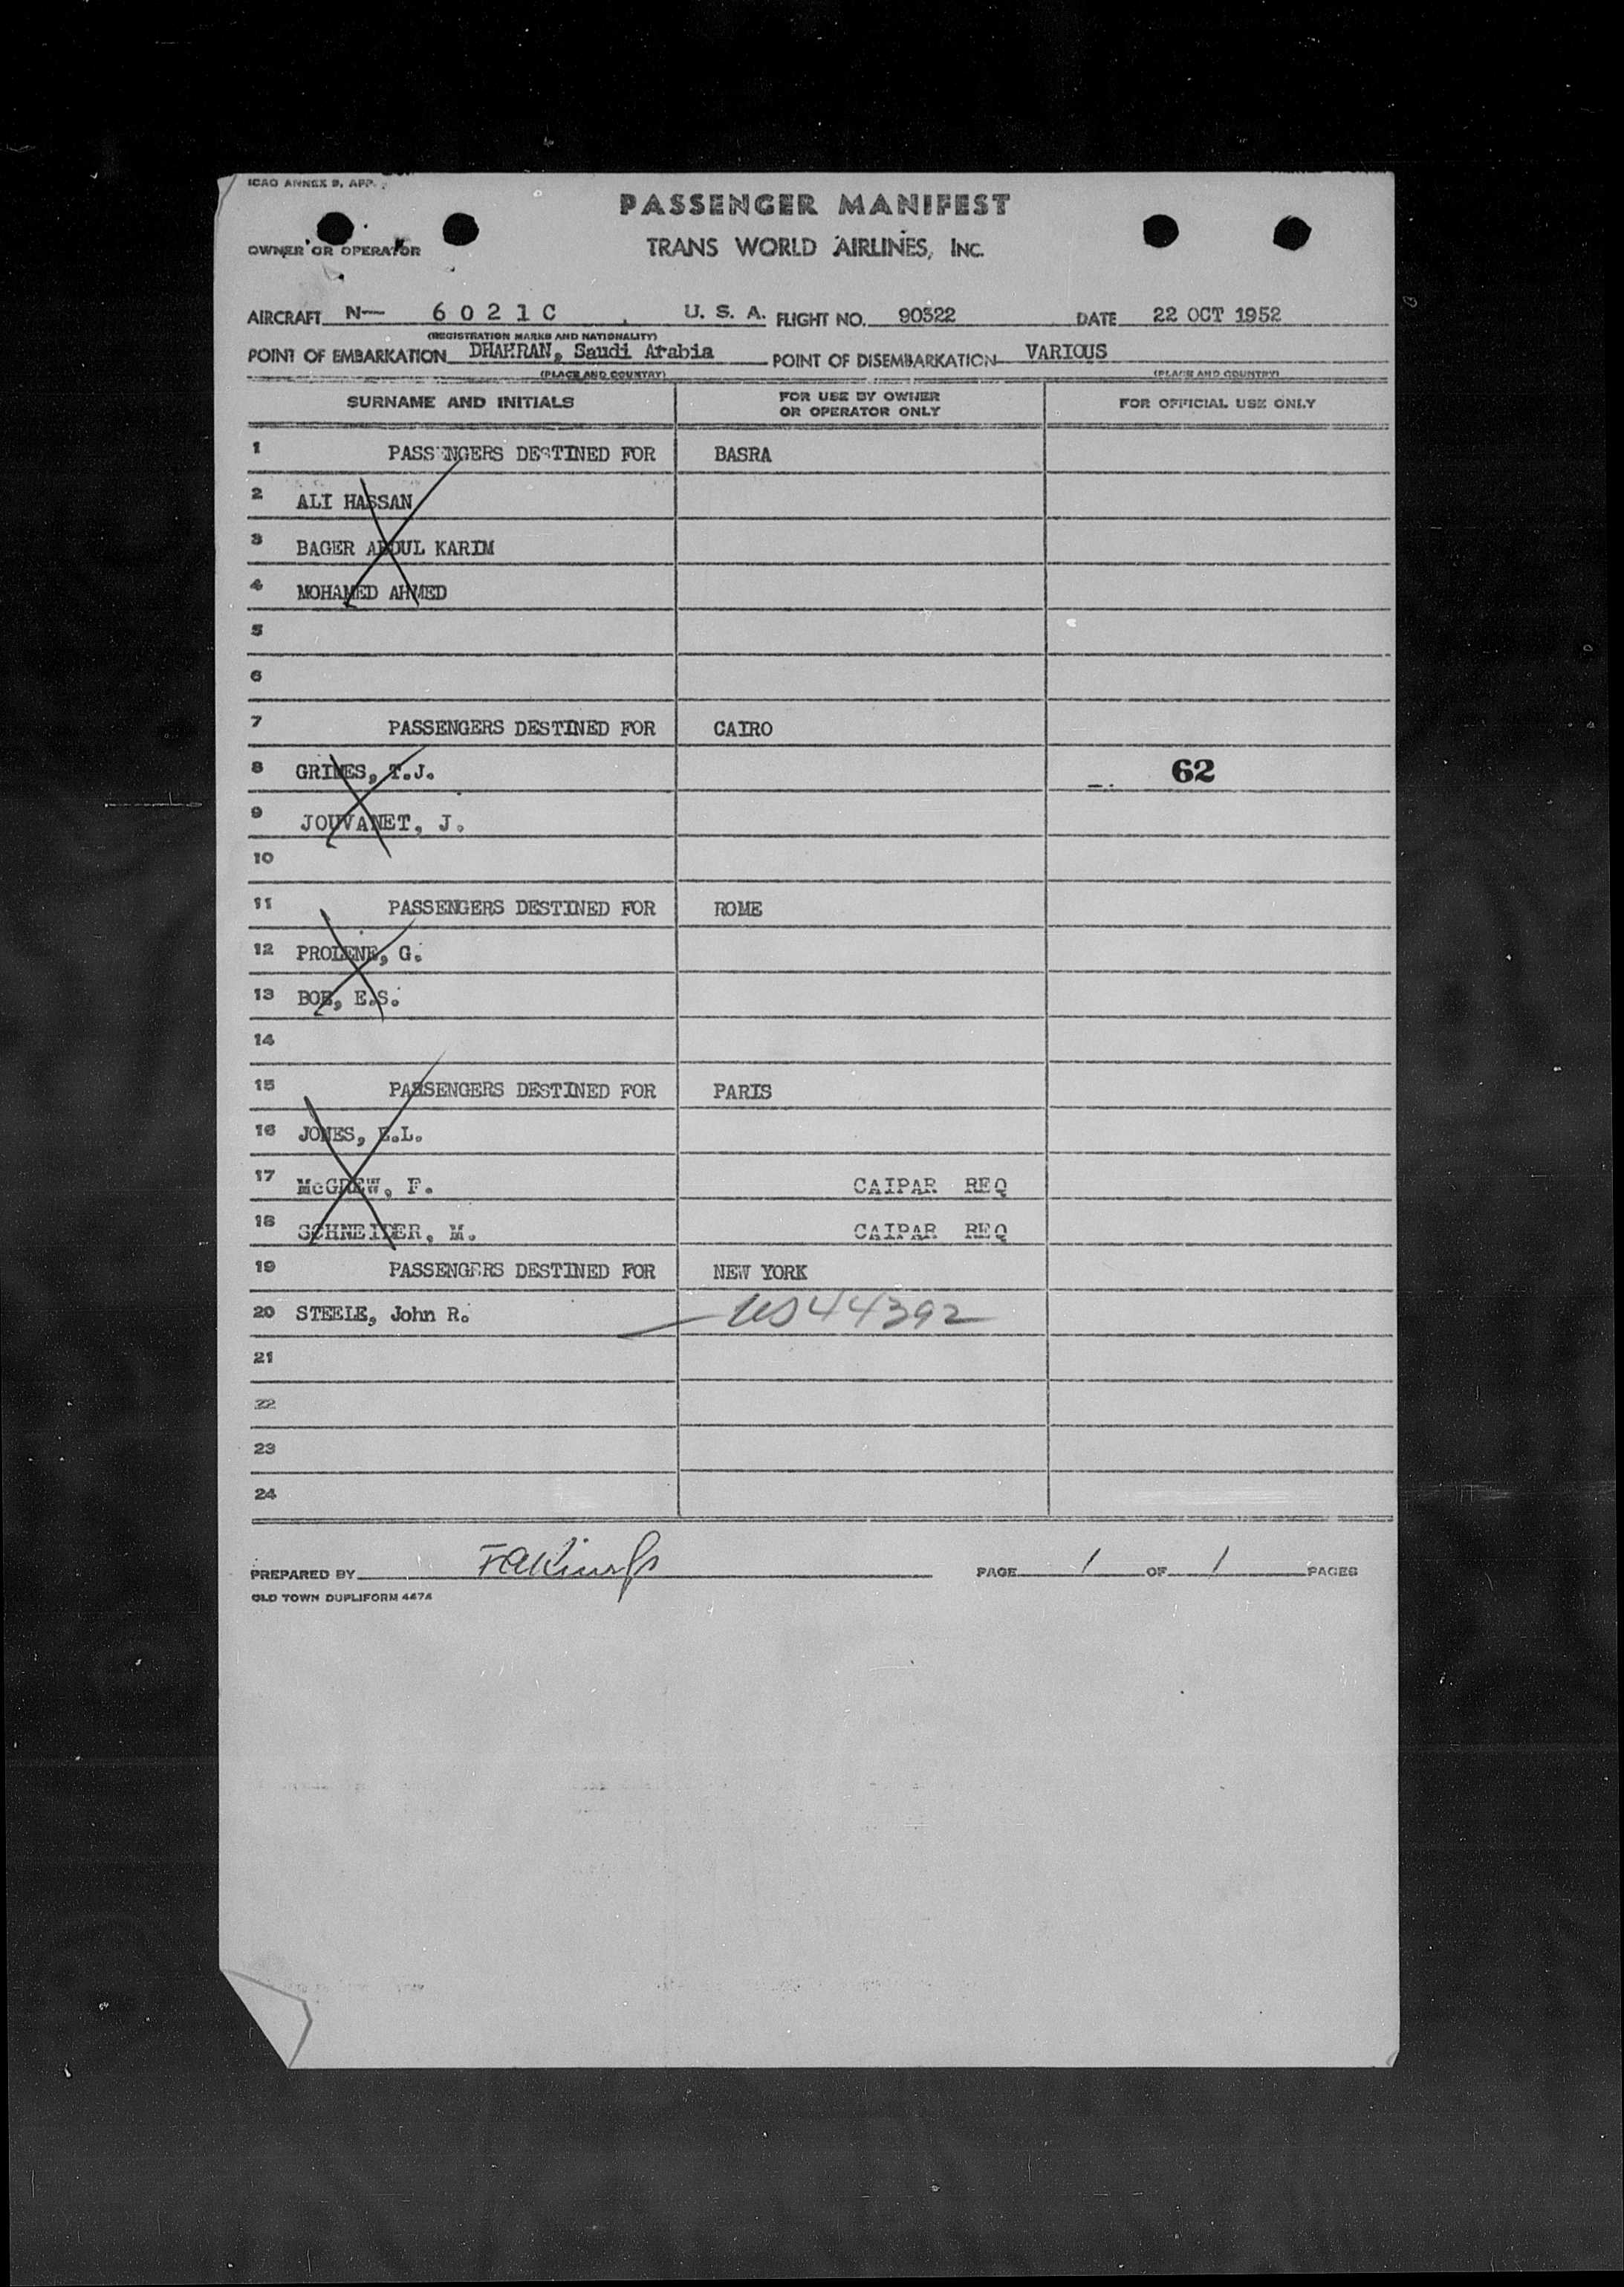 ICAO ANNEX 9, APP.
PASSENGER MANIFEST
OWNER OR OPERATOR TRANS WORLD AIRLINES, INC.
AIRCRAFT N— 6 0 2 1 C U. S. A. FLIGHT NO. 90322 DATE 22 OCT 1952
(REGISTRATION MARKS AND NATIONALITY)
POINT OF EMBARKATION DHAHRAN, Saudi Arabia POINT OF DISEMBARKATION VARIOUS
(PLACE AND COUNTRY) (PLACE AND COUNTRY)
SURNAME AND INITIALS FOR USE BY OWNER OR OPERATOR ONLY FOR OFFICIAL USE ONLY
1 PASSENGERS DESTINED FOR BASRA
2 ALI HASSAN
3 BAGER ABDUL KARIM
4 MOHAMED AHMED
5
6
7 PASSENGERS DESTINED FOR CAIRO
8 GRIMES, T.J. 62
9 JOUVANET, J.
10
11 PASSENGERS DESTINED FOR ROME
12 PROLENE, G.
13 BOE, E.S.
14
15 PASSENGERS DESTINED FOR PARIS
16 JONES, E.L.
17 McGREW, F. CAIPAR REQ
18 SCHNEIDER, M. CAIPAR REQ
19 PASSENGERS DESTINED FOR NEW YORK
20 STEELE, John R. US 44392
21
22
23
24
PREPARED BY PAGE 1 OF 1 PAGES
OLD TOWN DUPLIFORM 4474